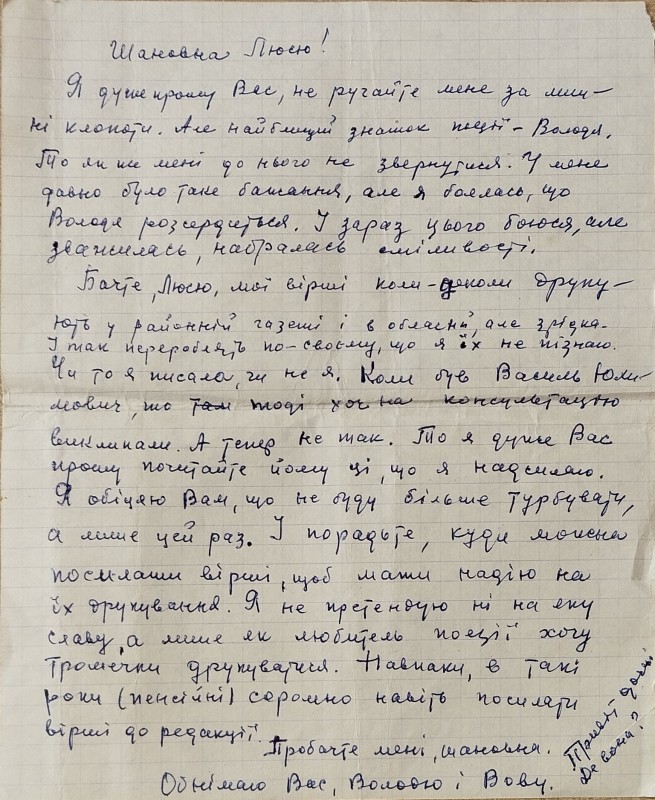 Шановна Люсю!
Я дуже прошу Вас, не ручайте мене за лиш-
ні клопоти. Але найближчий знаток поезії - Володя.
То як же мені до нього не звернутися. У мене
давно було таке бажання, але я боялась, що
Володя розсердиться. І зараз цього боюся, але
зважилась, набралась сміливості.
Бачте, Люсю, мої вірші коли-неколи друку-
ють у районній газеті і в обласній, але зрідка.
І так переробляють по-своєму, що я їх не пізнаю.
Чи то я писала, чи не я. Коли був Василь Юхи-
мович, то там тоді хоч на консультацію
викликали. А тепер не так. То я дуже Вас
прошу почитайте йому ці, що я надсилаю.
Я обіцяю Вам, що не буду більше турбувати,
а лише цей раз. І порадьте, куди можна
посилати вірші, щоб мати надію на
їх друкування. Я не претендую ні на яку
славу, а лише як любитель поезії хочу
трошечки друкуватися. Навпаки, в такі
роки (пенсійні) соромно навіть посилати
вірші до редакції.
Пробачте мені, шановна.
Обнімаю Вас, Володю і Вову.
Привіт доні.
Де вона?